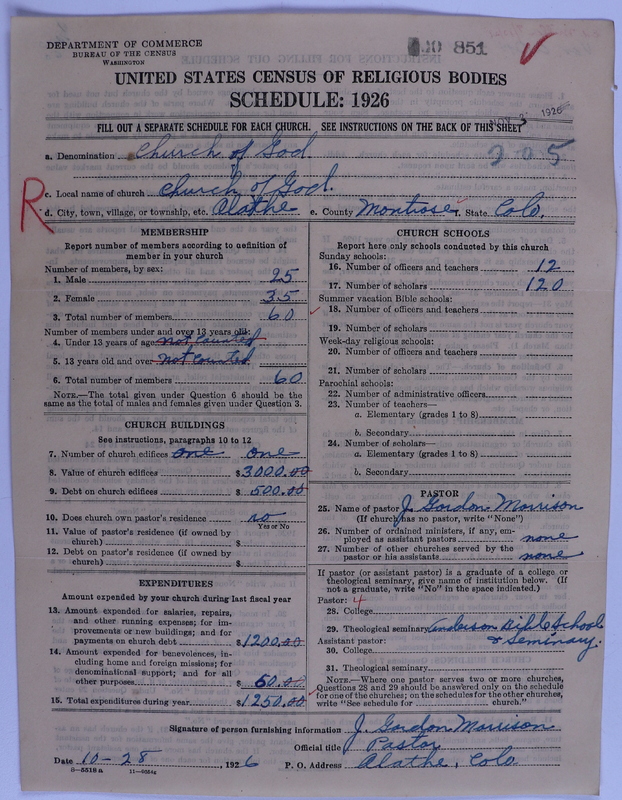 DEPARTMENT OF COMMERCE
BUREAU OF THE CENSUS
WASHINGTON
851
UNITED STATES CENSUS OF RELIGIOUS BODIES
SCHEDULE: 1926
NOV 3 1926
FILL OUT A SEPARATE SCHEDULE FOR EACH CHURCH. SEE INSTRUCTIONS ON THE BACK OF THIS SHEET
a. Denomination Church of God
205
R
c. Local name of church Church of God.
d. City, town, village, or township, etc. Olathe e. County Montrose f. State. Colo.
MEMBERSHIP
Report number of members according to definition of member in your church
Number of members, by sex:
1. Male 25
2. Female 35
3. Total number of members 60
Number of members under and over 13 years old:
4. Under 13 years of age not counted
5. 13 years old and over not counted
6. Total number of members 60
NOTE.—The total given under Question 6 should be
same as the total of males and females given under Question 3.
CHURCH BUILDINGS
See instructions, paragraphs 10 to 12
7. Number of church edifices one one
8. Value of church edifices $3000.00
9. Debt on church edifices $ 500.00
10. Does church own pastor's residence no
Yes or No
11. Value of pastor's residence (if owned by
church) $
12. Debt on pastor's residence (if owned by
church) $
EXPENDITURES
Amount expended by your church during last fiscal year
13. Amount expended for salaries, repairs,
and other running expenses; for im-
provements or new buildings; and for
payments on church debt $1200.00
14. Amount expended for benevolences, in-
cluding home and foreign missions; for
denominational support; and for all
other purposes $ 50.00
15. Total expenditures during year $1250.00
CHURCH SCHOOLS
Report here only schools conducted by this church
Sunday schools:
16. Number of officers and teachers 12
17. Number of scholars 120
Summer vacation Bible schools:
18. Number of officers and teachers
19. Number of scholars
Week-day religious schools:
20. Number of officers and teachers
21. Number of scholars
Parochial schools:
22. Number of administrative officers
23. Number of teachers—
a. Elementary (grades 1 to 8)
b. Secondary
24. Number of scholars—
a. Elementary (grades 1 to 8)
b. Secondary
PASTOR
25. Name of pastor J. Gordon Morrison
(If church has no pastor, write "None")
26. Number of ordained ministers, if any, em-
ployed as assistant pastors none
27. Number of other churches served by the
pastor or his assistants none
If pastor (or assistant pastor) is a graduate of a college or
theological seminary, give name of institution below. (If
not a graduate, write "No" in the space indicated.)
Pastor: 4
28. College
29. Theological seminary Anderson Bible School
& Seminary.
Assistant pastor:
30. College
31. Theological seminary
NOTE.—Where one pastor serves two or more churches,
Questions 28 and 29 should be answered only on the schedule
for one of the churches; on the schedules for the other churches,
write "See schedule for church."
Signature of person furnishing information J. Gordon Morrison
Official title Pastor
Date 10-28, 1926 P. O. Address Olathe, Colo
8—5518a 11—9554g